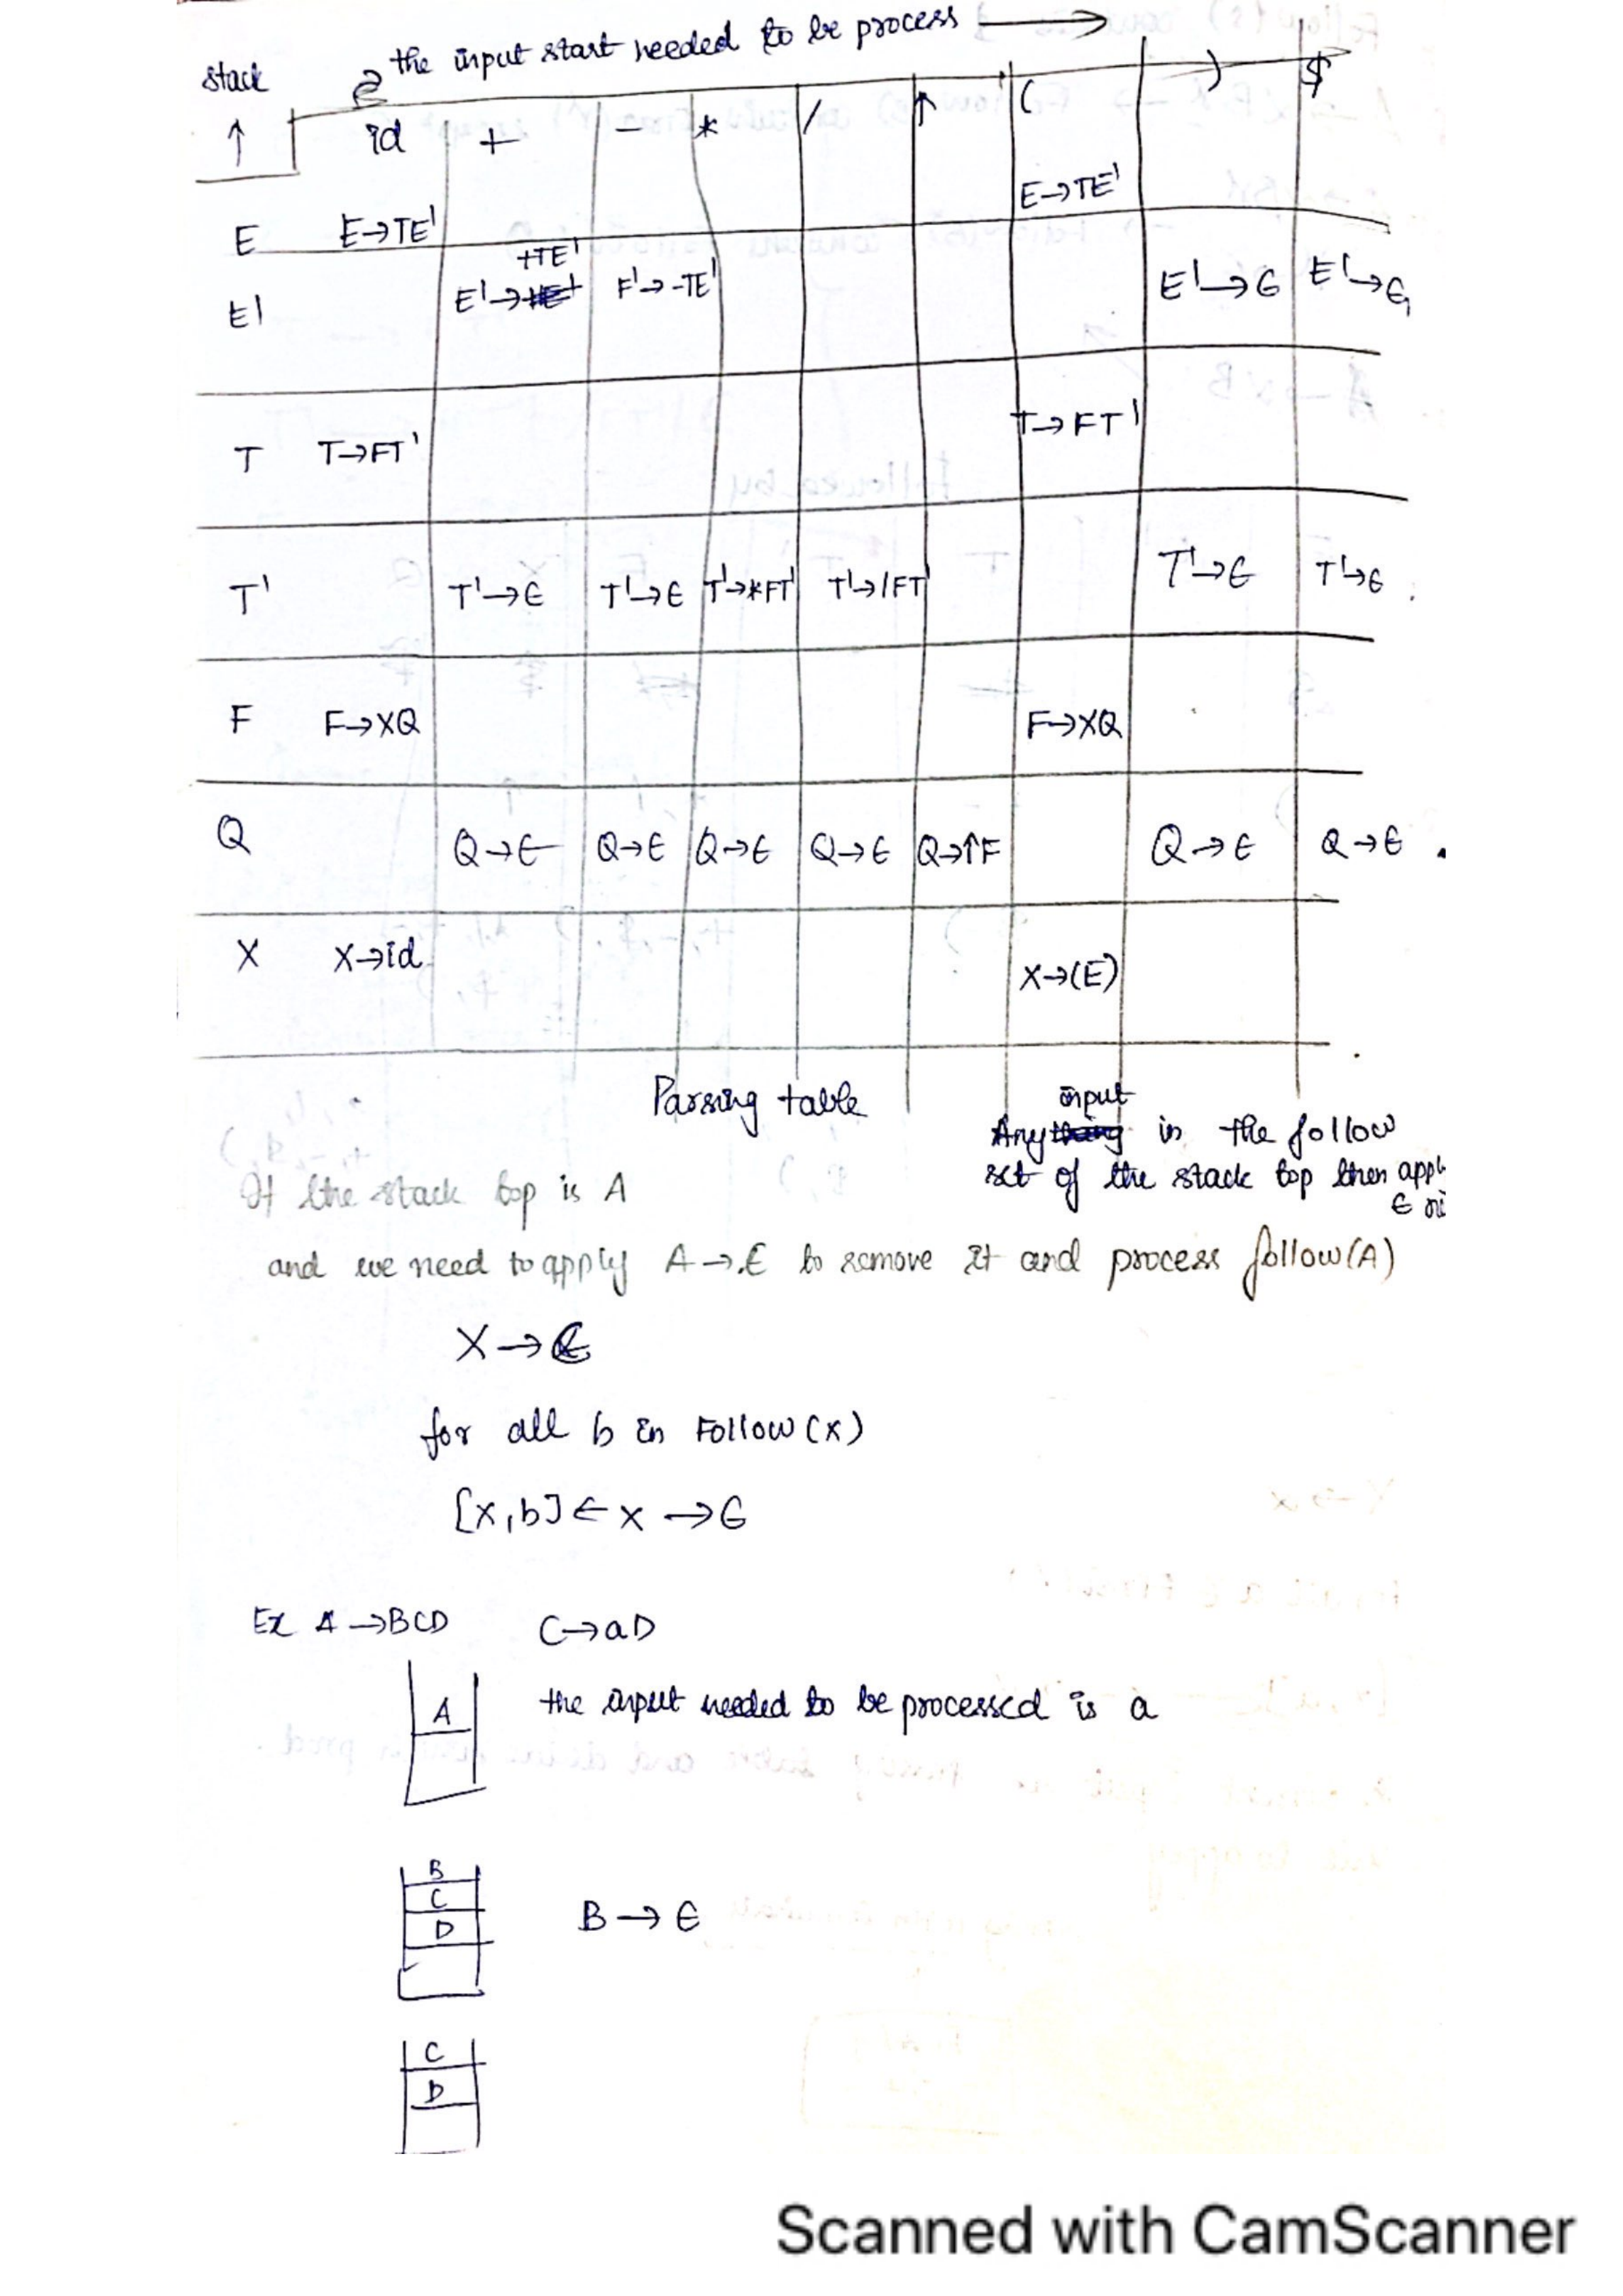 the input start needed to be process →
stack
↑ id + - * / ↑ ( ) $
E E→TE' E→TE'
+TE'
E' E'→ F'→-TE' E'→ϵ E'→ϵ
T T→FT' T→FT'
T' T'→ϵ T'→ϵ T'→*FT' T'→/FT' T'→ϵ T'→ϵ
F F→XQ F→XQ
Q Q→ϵ Q→ϵ Q→ϵ Q→ϵ Q→↑F Q→ϵ Q→ϵ
X X→id X→(E)
Parsing table
input
Any in the follow
set of the stack top then appl
ϵ
If the stack top is A
and we need to apply A→ϵ to remove it and process follow(A)
X→ϵ
for all b in Follow(x)
[x,b] ← x →ϵ
Ex A→BCD C→aD
A the input needed to be processed is a
B
C
D B→ϵ
C
D
Scanned with CamScanner